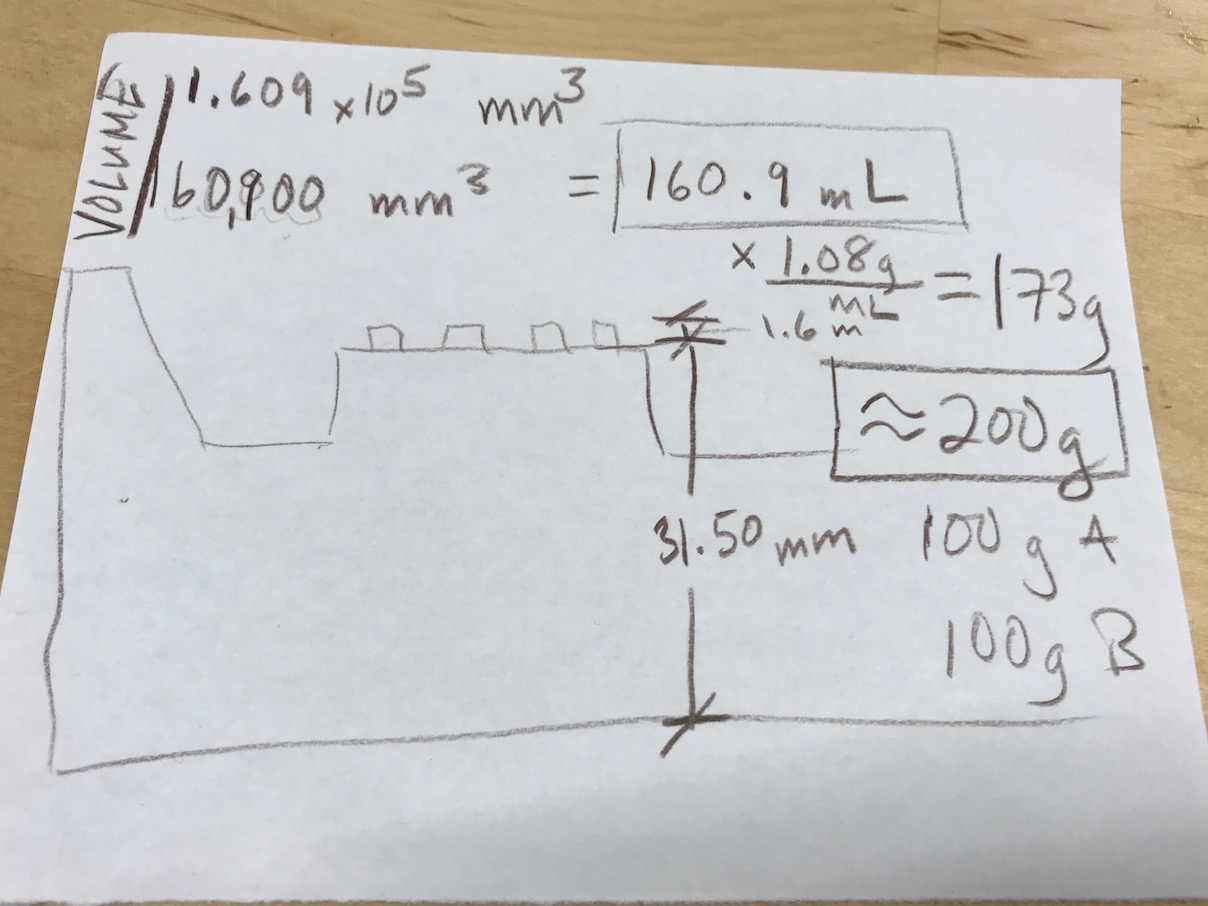 VOLUME
1.609 x10⁵ mm³
160,900 mm³ = 160.9 mL
x 1.08g
mL
= 173g
1.6 m
≈200g
31.50 mm
100 g A
100g B